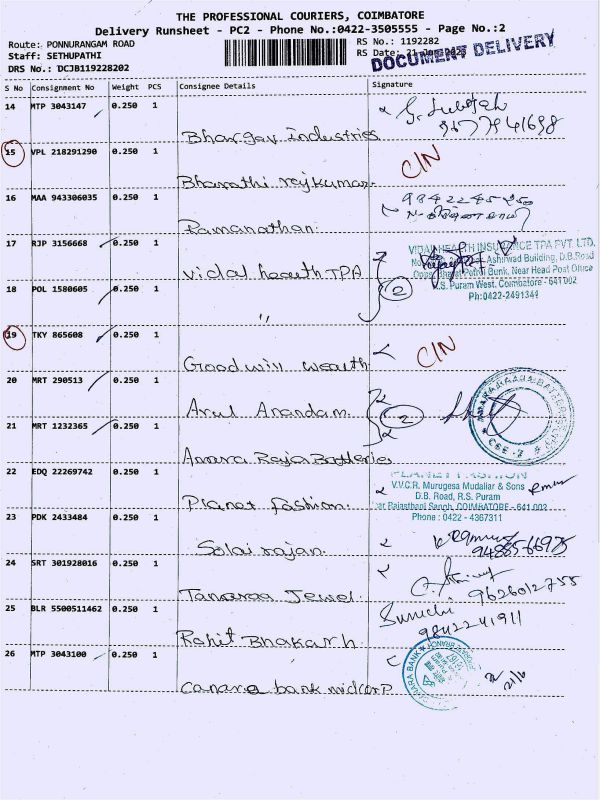 THE PROFESSIONAL COURIERS, COIMBATORE
Delivery Runsheet - PC2 - Phone No.:0422-3505555 - Page No.:2
Route: PONNURANGAM ROAD
RS No.: 1192282
Staff: SETHUPATHI
RS Date: 21
DOCUMENT DELIVERY
DRS No.: DCJB119228202
S No Consignment No Weight PCS Consignee Details Signature
14 MTP 3043147 0.250 1
Bhargav industries
15 VPL 218291290 0.250 1
Bharathi rajkumar.
C/N
16 MAA 943306035 0.250 1
Ramanathan.
17 RJP 3156668 0.250 1
Vidal health TPA
VIDAL HEALTH INSURANCE TPA PVT. LTD.
Ashirwad Building, D.B.Road
Petrol Bunk, Near Head Post Office
R.S. Puram West, Coimbatore - 641 002
Ph:0422-2491344
18 POL 1580605 0.250 1
"
2
19 TKY 865608 0.250 1
Goodwill wealth
C/N
20 MRT 290513 0.250 1
Arul Anandam.
2
21 MRT 1232365 0.250 1
Amara Raja Batteries
22 EDQ 22269742 0.250 1
Planet fashion.
PLANET FASHION
V.V.C.R. Murugesa Mudaliar & Sons
D.B. Road, R.S. Puram
Rajasthani Sangh, COIMBATORE - 641 002
Phone : 0422 - 4367311
23 PDK 2433484 0.250 1
Solai rajan.
24 SRT 301928016 0.250 1
Tanaraa Jewel.
9626012755
25 BLR 5500511462 0.250 1
Rohit Bhakarh
Suruchi
9842241911
26 MTP 3043100 0.250 1
Canara bank midcorp.
CANARA BANK